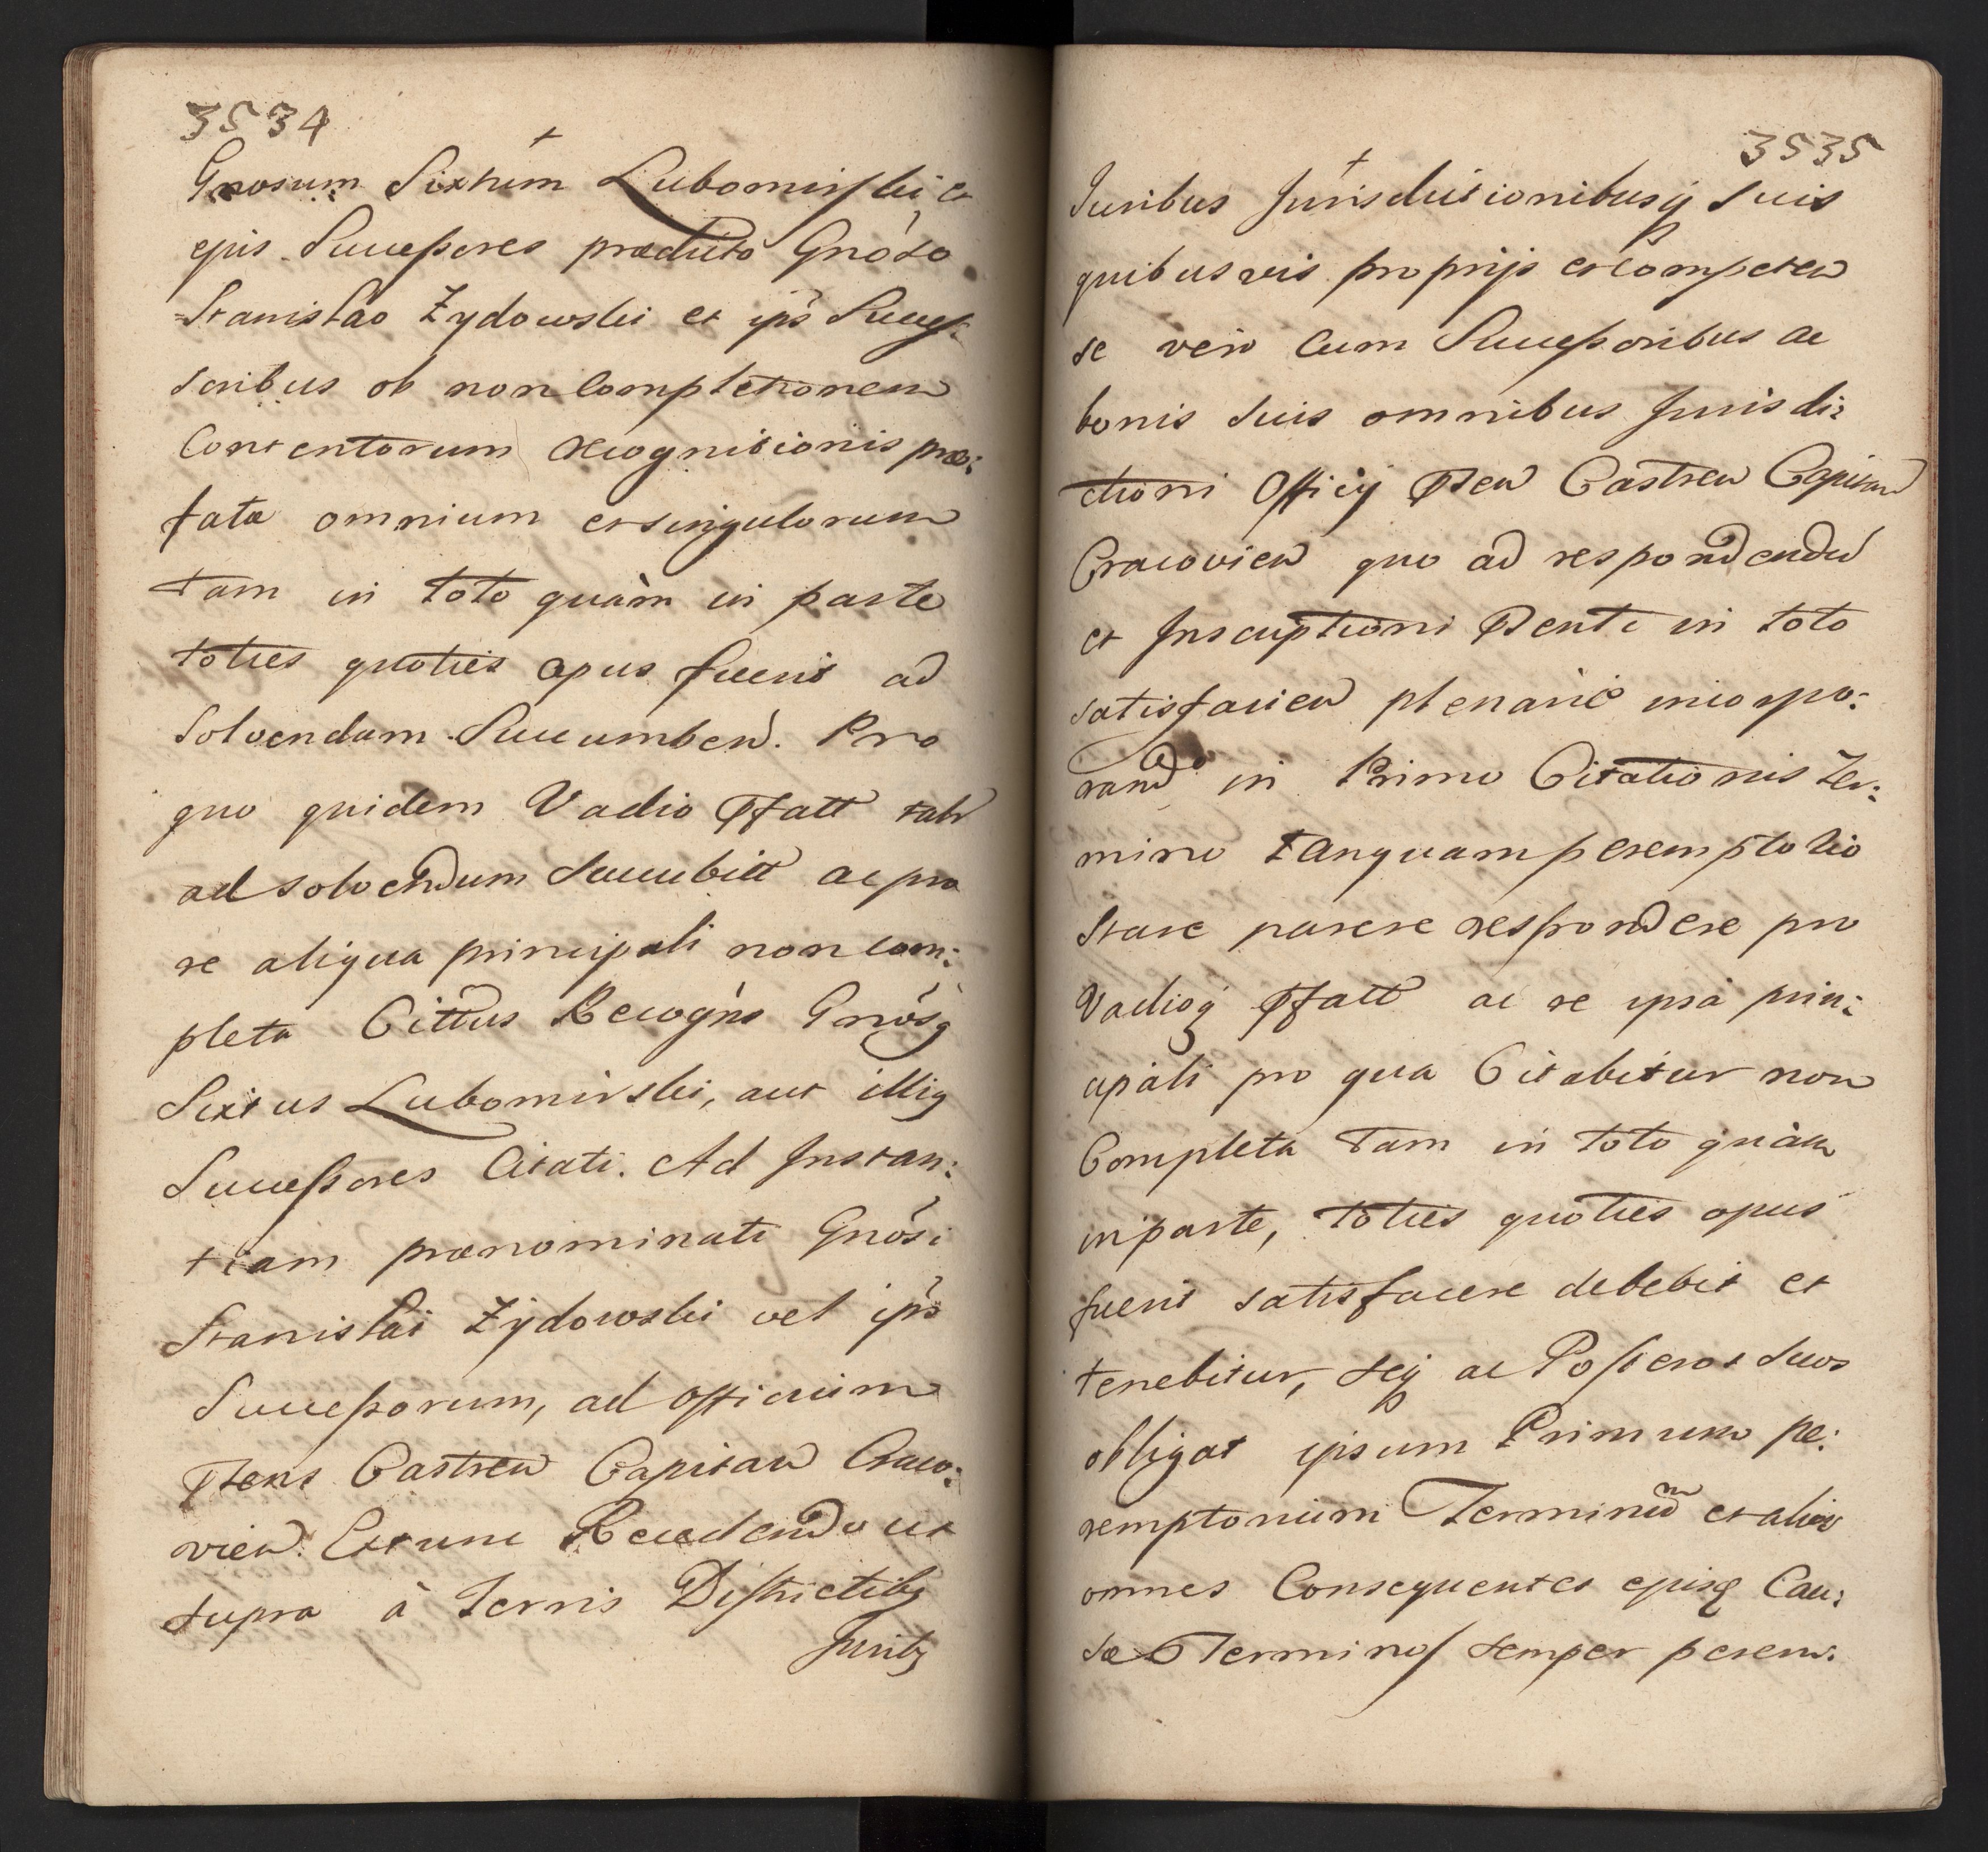 3534
Gnosum Sixtum Lubomirski et
ejus Successores prædicto Gnoso
Stanislao Zydowski et ips Succes-
soribus ob non Completionem
Contentorum recognitionis præ:
fata omnium et singulorum
tam in toto quàm in parte
toties quoties opus fuerit ad
Solvendam Succumben. Pro
quo quidem Vadio Pfatt
ad solvendum Succubitt ac pro
re aliqua principali non com:
pleta Cittus Recogns Gnosq
Sixtus Lubomirski, aut illiq
Successores Citati. Ad Instan:
tiam prænominati Gnosi
Stanislai Zydowski vel ips
Successorum, ad Officium
Psens Castren Capitan Craco:
vien. Extunc Recedendo ut
supra à Terris Districtibq
Juribq
3535
Juribus Jurisdictionibusq suis
quibusvis proprijs et Competen
se vero Cum Successoribus ac
bonis suis omnibus Jurisdi:
ctioni Officij Psen Castren Capitan
Cracovien quo ad respondendu
et Inscriptioni Psenti in toto
satisfacien plenariè incorpo:
rando in Primo Citationis Ter:
mino tanquam peremptorio
Stare parere respondere pro
Vadioq Pfatt ac re ipsâ prin:
cipali pro qua Citabitur non
Completa tam in toto quàm
in parte, toties quoties opus
fuerit satisfacere debebit et
tenebitur, seq ac Posteros suos
obligat ipsum Primum pe:
remptorium Terminum et alios
omnes Consequentes ejusq Cau:
sæ Terminos semper perem: